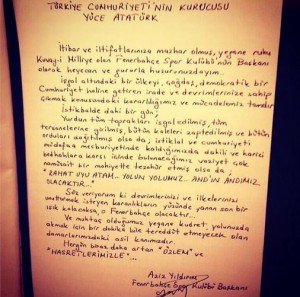 TÜRKİYE CUMHURİYETİ'NİN KURUCUSU
YÜCE ATATÜRK
İtibar ve iltifatlarınıza mazhar olmuş, yegane ruhu
Kuvayi Milliye olan Fenerbahçe Spor Kulübü'nün Başkanı
olarak heyecan ve gururla huzurunuzdayım...
İşgal altındaki bir ülkeyi, çağdaş, demokratik bir
Cumhuriyet haline getiren irade ve devrimlerinize sahip
çıkmak konusundaki kararlılığımız ve mücadelemiz tamdır
İstikbalde dahi bir gün;
Yurdun tüm toprakları işgal edilmiş, tüm
tersanelerine girilmiş, bütün kaleleri zaptedilmiş ve bütün
orduları dağıtılmış olsa da, istiklal ve cumhuriyeti
müdafaa mecburiyetinde kaldığımızda dahili ve harici
bedhahlara karşı içinde bulunacağımız vaziyet çok
namüsait bir mahiyette tezahür etmiş olsa da;
"RAHAT UYU ATAM... YOLUN YOLUMUZ. AND'IN ANDIMIZ
OLACAKTIR..."
Söz veriyorum ki devrimlerinizi ve ilkelerinizi
unutturmak isteyen karanlıkların yüzünde yanan son bir
ışık kalacaksa, o Fenerbahçe olacaktır...
Ve muhtaç olduğumuz yegane kudret, yolunuzda
akmak için bir dakika bile tereddüt etmeyecek olan
damarlarımızdaki asil kanımızdır.
Hergün biraz daha artan "ÖZLEM" ve
"HASRETLERİMİZLE"...
Aziz Yıldırım
Fenerbahçe Spor Kulübü Başkanı